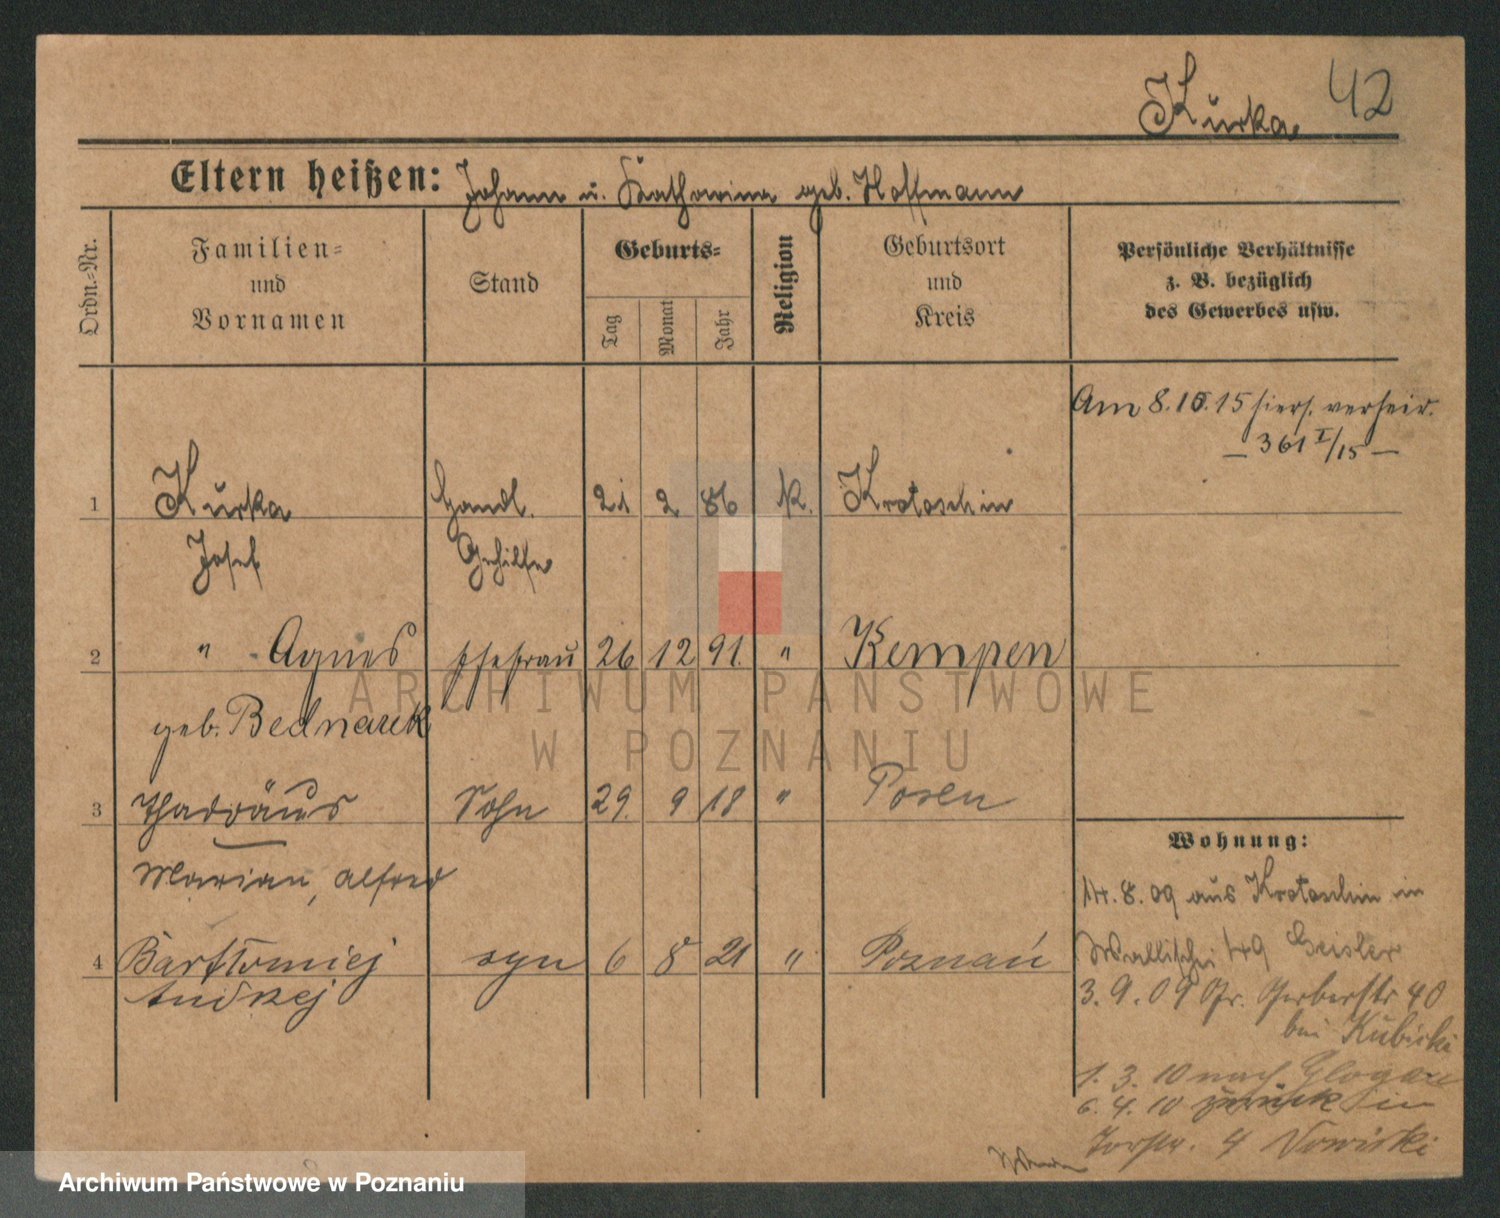 Kurka 42
Eltern heißen: Johann u. Katharina geb. Hoffmann
Ordn.-Nr.
Familien-
und
Vornamen
Stand
Geburts-
Tag
Monat
Jahr
Religion
Geburtsort
und
Kreis
Persönliche Verhältnisse
z. B. bezüglich
des Gewerbes usw.
Am 8.10.15 hiers. verheir.
— 361 I/15 —
1 Kurka Handl. 21 2 86 k. Krotoschin
Josef Gehilfe
2 " Agnes Ehefrau 26 12 91. " Kempen
geb. Bednarek
3 Thadäus Sohn 29. 9 18 " Posen
Marian, Alfred
4 Bartłomiej syn 6 8 21 " Poznań
Andrzej
Wohnung:
14.8.09 aus Krotoschin in
Wallischei 49 Geisler
3.9.09 Gr. Gerberstr 40
bei Kubicki
1.3.10 nach Glogau
6.4.10 zurück in
4 Nowicki
ARCHIWUM PAŃSTWOWE
W POZNANIU
Archiwum Państwowe w Poznaniu